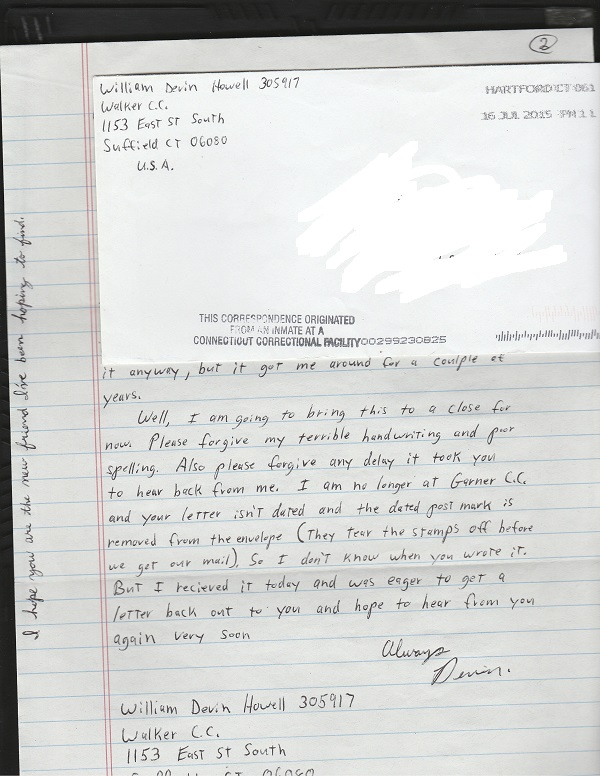 2
William Devin Howell 305917
Walker C.C.
1153 East St South
Suffield CT 06080
U.S.A.
HARTFORD CT 061
16 JUL 2015 PM 1 L
THIS CORRESPONDENCE ORIGINATED
FROM AN INMATE AT A
CONNECTICUT CORRECTIONAL FACILITY 00299230825
it anyway, but it got me around for a coulple of
years.
Well, I am going to bring this to a close for
now. Please forgive my terrible handwriting and poor
spelling. Also please forgive any delay it took you
to hear back from me. I am no longer at Garner C.C.
and your letter isn't dated and the dated post mark is
removed from the envelope (They tear the stamps off before
we get our mail). So I don't know when you wrote it.
But I recieved it today and was eager to get a
letter back out to you and hope to hear from you
again very soon
Always
Devin.
William Devin Howell 305917
Walker C.C.
1153 East St South
I hope you are the new friend I've been hoping to find.